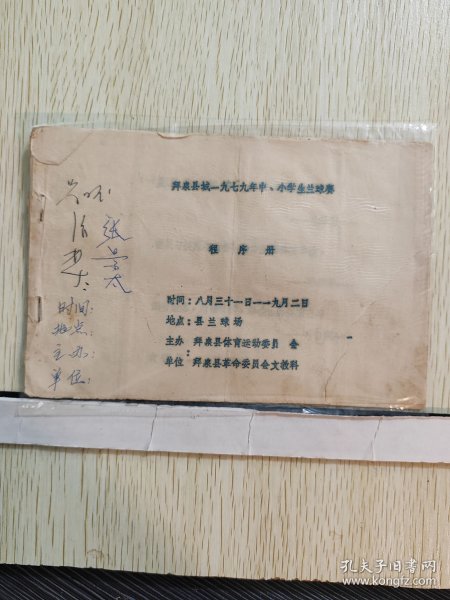 拜泉县城一九七九年中、小学生兰球赛
程序册
时间:八月三十一日一一九月二日
地点:县兰球场
主办 拜泉县体育运动委员会
单位:拜泉县革命委员会文教科
时间:
地点:
主办
单位:
孔夫子旧书网
www.kongfz.com